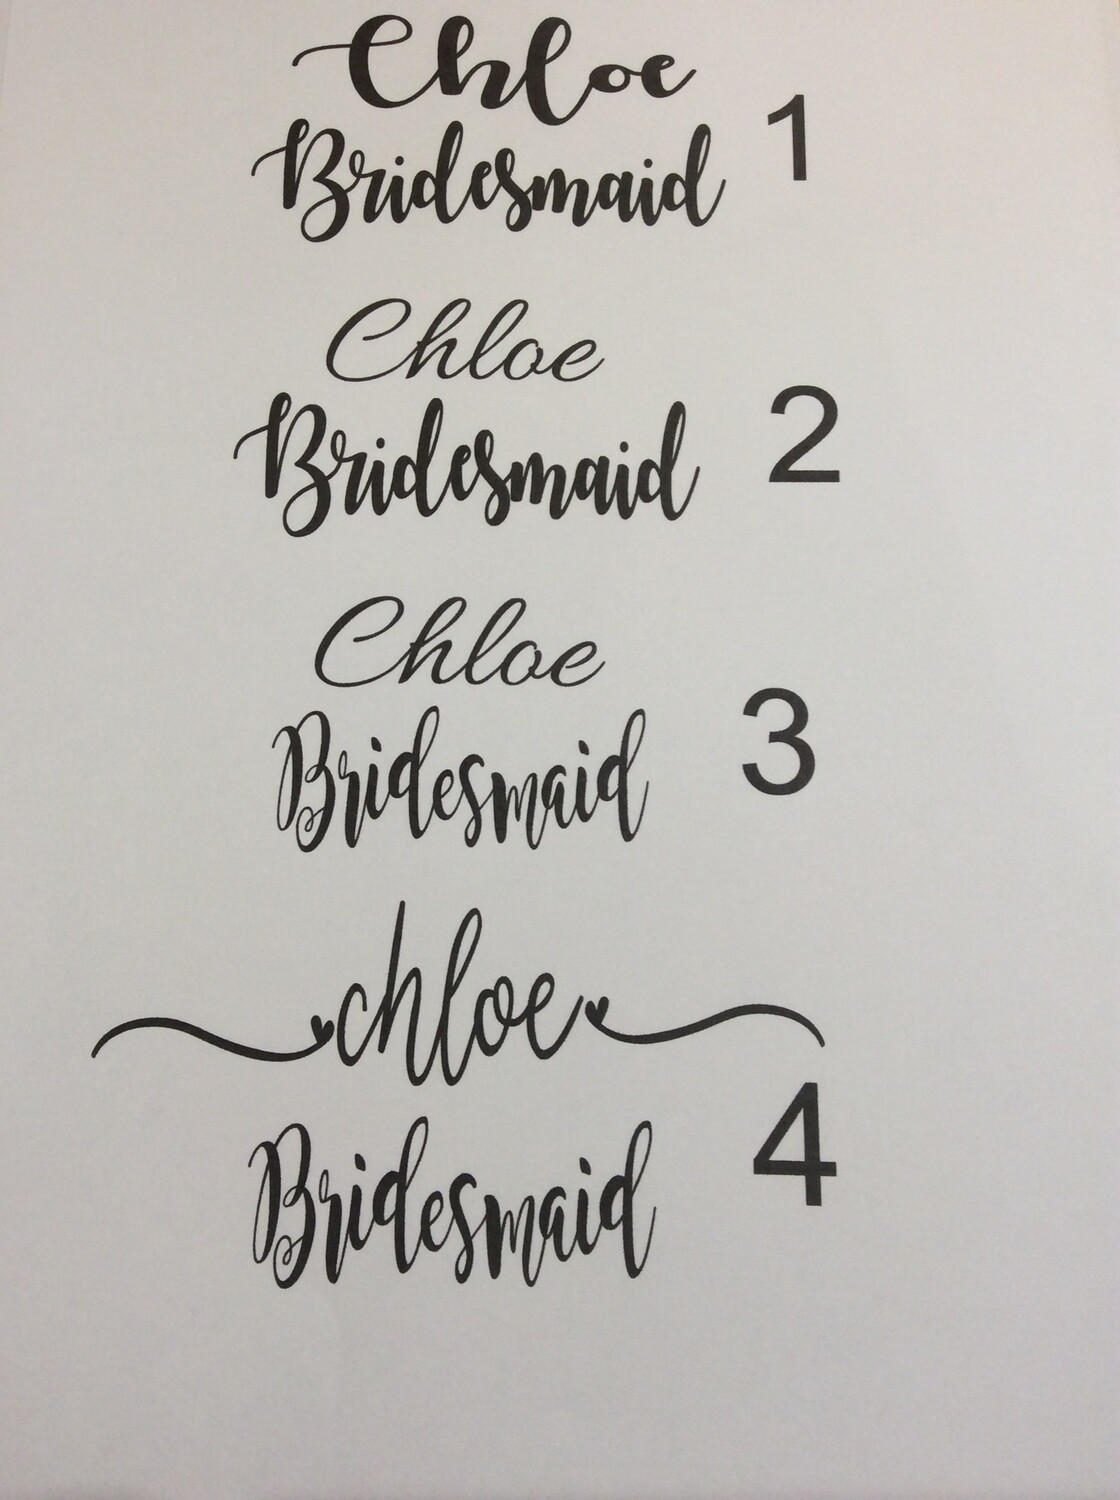 Chloe
Bridesmaid 1
Chloe
Bridesmaid 2
Chloe
Bridesmaid 3
chloe
Bridesmaid 4